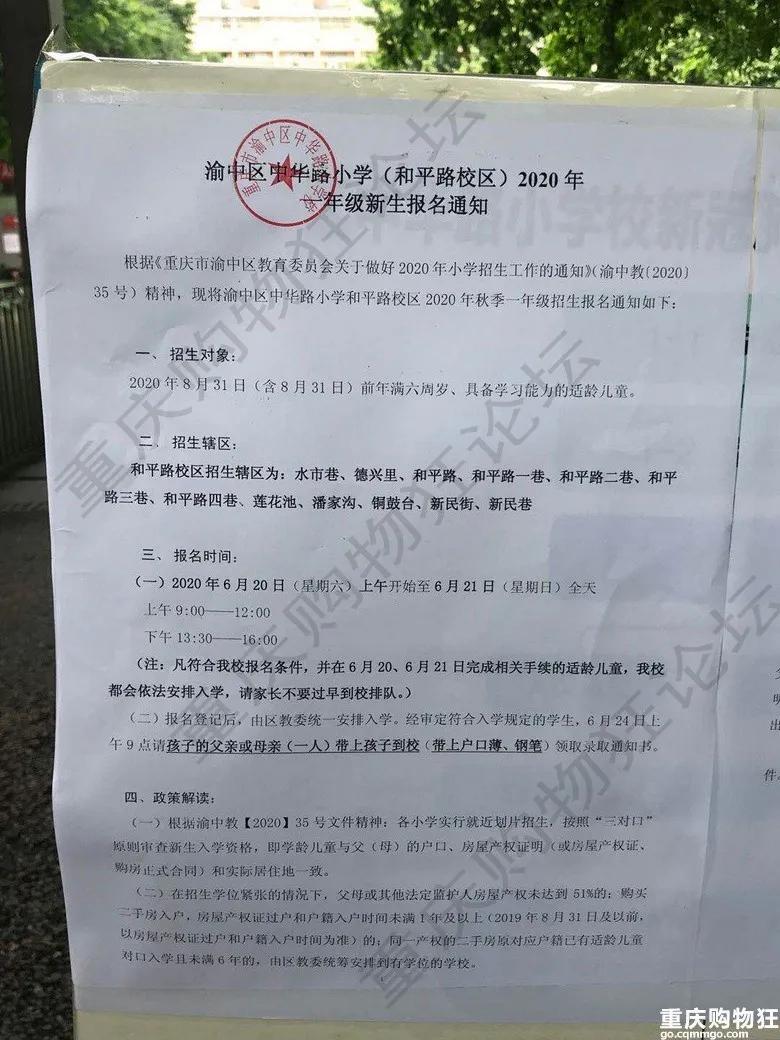 渝中区中华路小学（和平路校区）2020 年
一年级新生报名通知
根据《重庆市渝中区教育委员会关于做好 2020 年小学招生工作的通知》（渝中教〔2020〕
35 号）精神，现将渝中区中华路小学和平路校区 2020 年秋季一年级招生报名通知如下：
一、 招生对象：
2020 年 8 月 31 日（含 8 月 31 日）前年满六周岁、具备学习能力的适龄儿童。
二、 招生辖区：
和平路校区招生辖区为：水市巷、德兴里、和平路、和平路一巷、和平路二巷、和平
路三巷、和平路四巷、莲花池、潘家沟、铜鼓台、新民街、新民巷
三、 报名时间：
（一）2020 年 6 月 20 日（星期六）上午开始至 6 月 21 日（星期日）全天
上午 9:00——12:00
下午 13:30——16:00
（注：凡符合我校报名条件，并在 6 月 20、6 月 21 日完成相关手续的适龄儿童，我校
都会依法安排入学，请家长不要过早到校排队。）
（二）报名登记后，由区教委统一安排入学。经审定符合入学规定的学生，6 月 24 日上
午 9 点请孩子的父亲或母亲（一人）带上孩子到校（带上户口薄、钢笔）领取录取通知书。
四、政策解读：
（一）根据渝中教【2020】35 号文件精神：各小学实行就近划片招生，按照“三对口”
原则审查新生入学资格，即学龄儿童与父（母）的户口、房屋产权证明（或房屋产权证、
购房正式合同）和实际居住地一致。
（二）在招生学位紧张的情况下，父母或其他法定监护人房屋产权未达到 51%的；购买
二手房入户，房屋产权证过户和户籍入户时间未满 1 年及以上（2019 年 8 月 31 日及以前，
以房屋产权证过户和户籍入户时间为准）的；同一产权的二手房原对应户籍已有适龄儿童
对口入学且未满 6 年的，由区教委统筹安排到有学位的学校。
重庆购物狂论坛
重庆购物狂论坛
重庆购物狂
go.cqmmgo.com